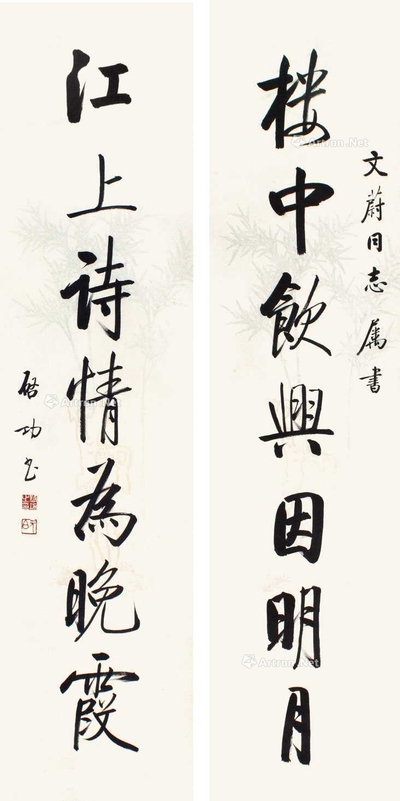 樓中飲興因明月
文蔚同志屬書
江上詩情為晚霞
啓功書